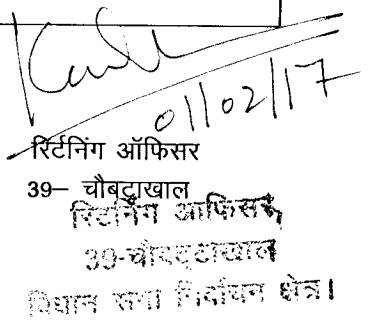 01/02/17
रिर्टनिंग ऑफिसर
39– चौबट्टाखाल
रिटर्निंग आफिसर,
39-चौबट्टाखाल
विधान सभा निर्वाचन क्षेत्र।